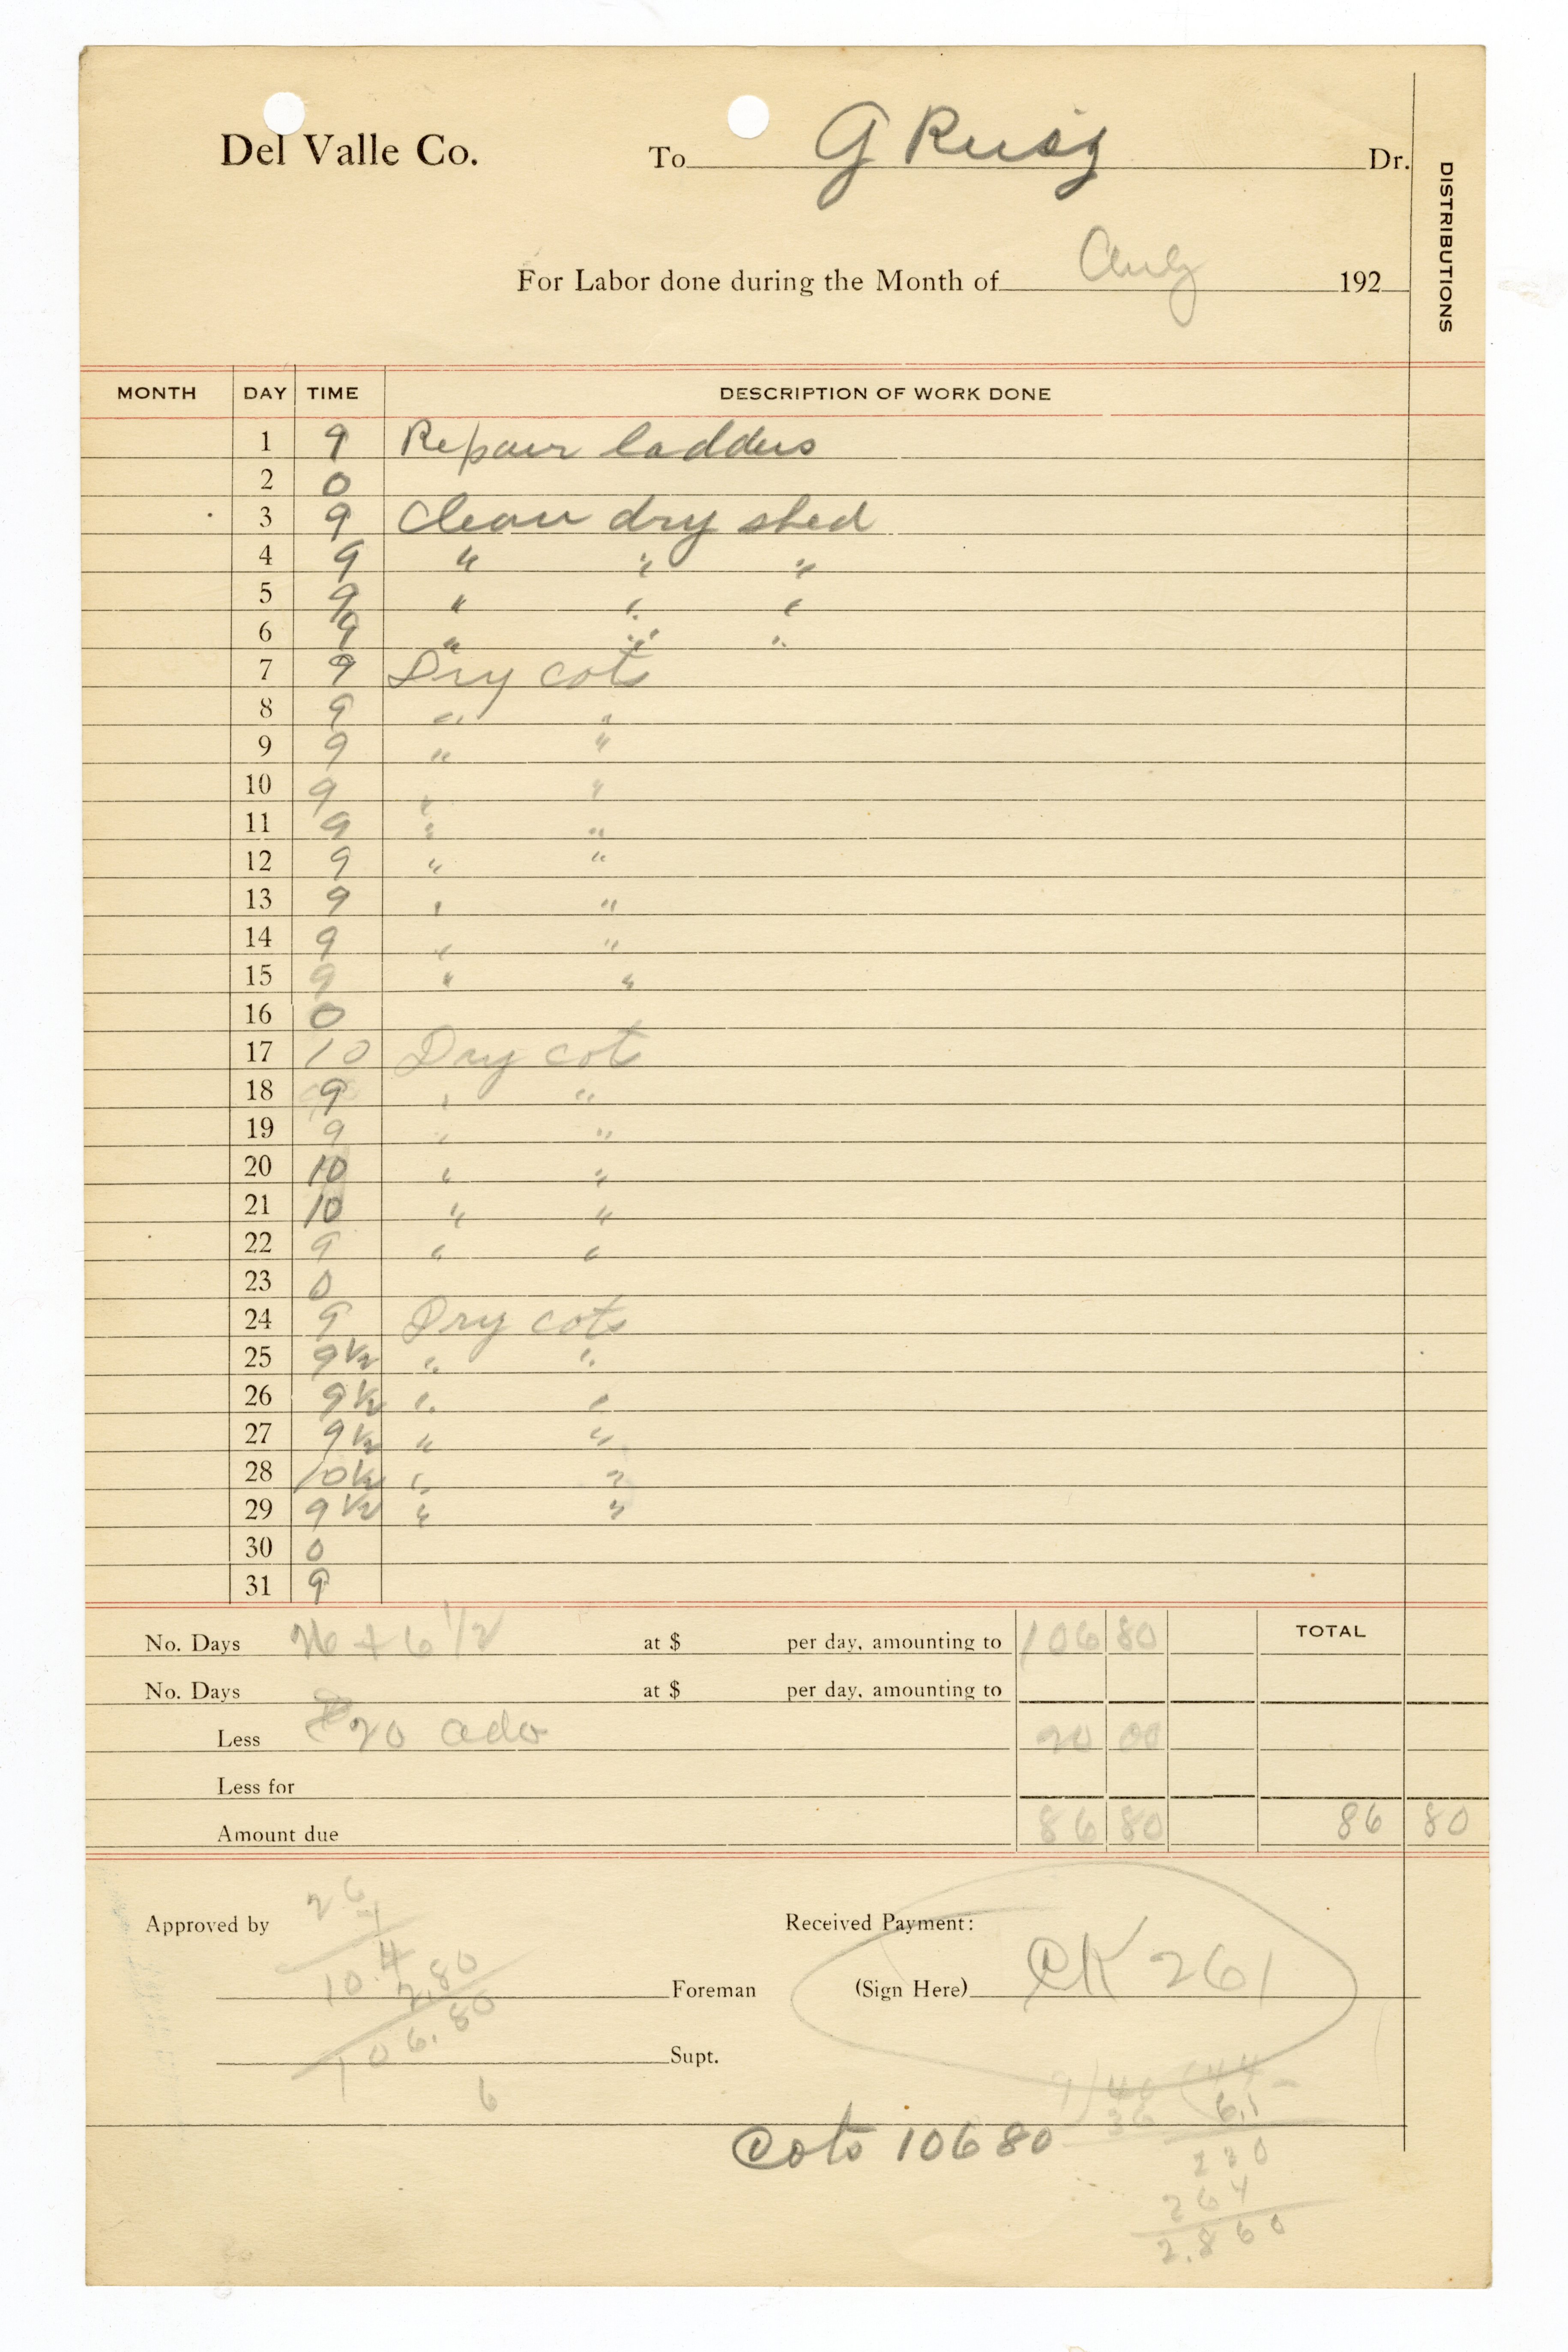 Del Valle Co. To G Ruiz Dr.
DISTRIBUTIONS
For Labor done during the Month of Aug 192
MONTH DAY TIME DESCRIPTION OF WORK DONE
1 9 Repair ladders
2 0
3 9 Clean dry shed
4 9 " " "
5 9 " " "
6 9 " " "
7 9 Dry cots
8 9 " "
9 9 " "
10 9 " "
11 9 " "
12 9 " "
13 9 " "
14 9 " "
15 9 " "
16 0
17 10 Dry cots
18 9 " "
19 9 " "
20 10 " "
21 10 " "
22 9 " "
23 0
24 9 Dry cots
25 9 1/2 " "
26 9 1/2 " "
27 9 1/2 " "
28 10 1/2 " "
29 9 1/2 " "
30 0
31 9
No. Days 26 + 6 1/2 at $ per day, amounting to 106 80 TOTAL
No. Days at $ per day, amounting to
Less 20 adv 20 00
Less for
Amount due 86 80 86 80
26
4
Approved by Received Payment:
10.4
2.80
Foreman (Sign Here) CK 261
106.80
Supt.
6
9)40(44
36 6.1
Cots 106 80
220
264
2.860